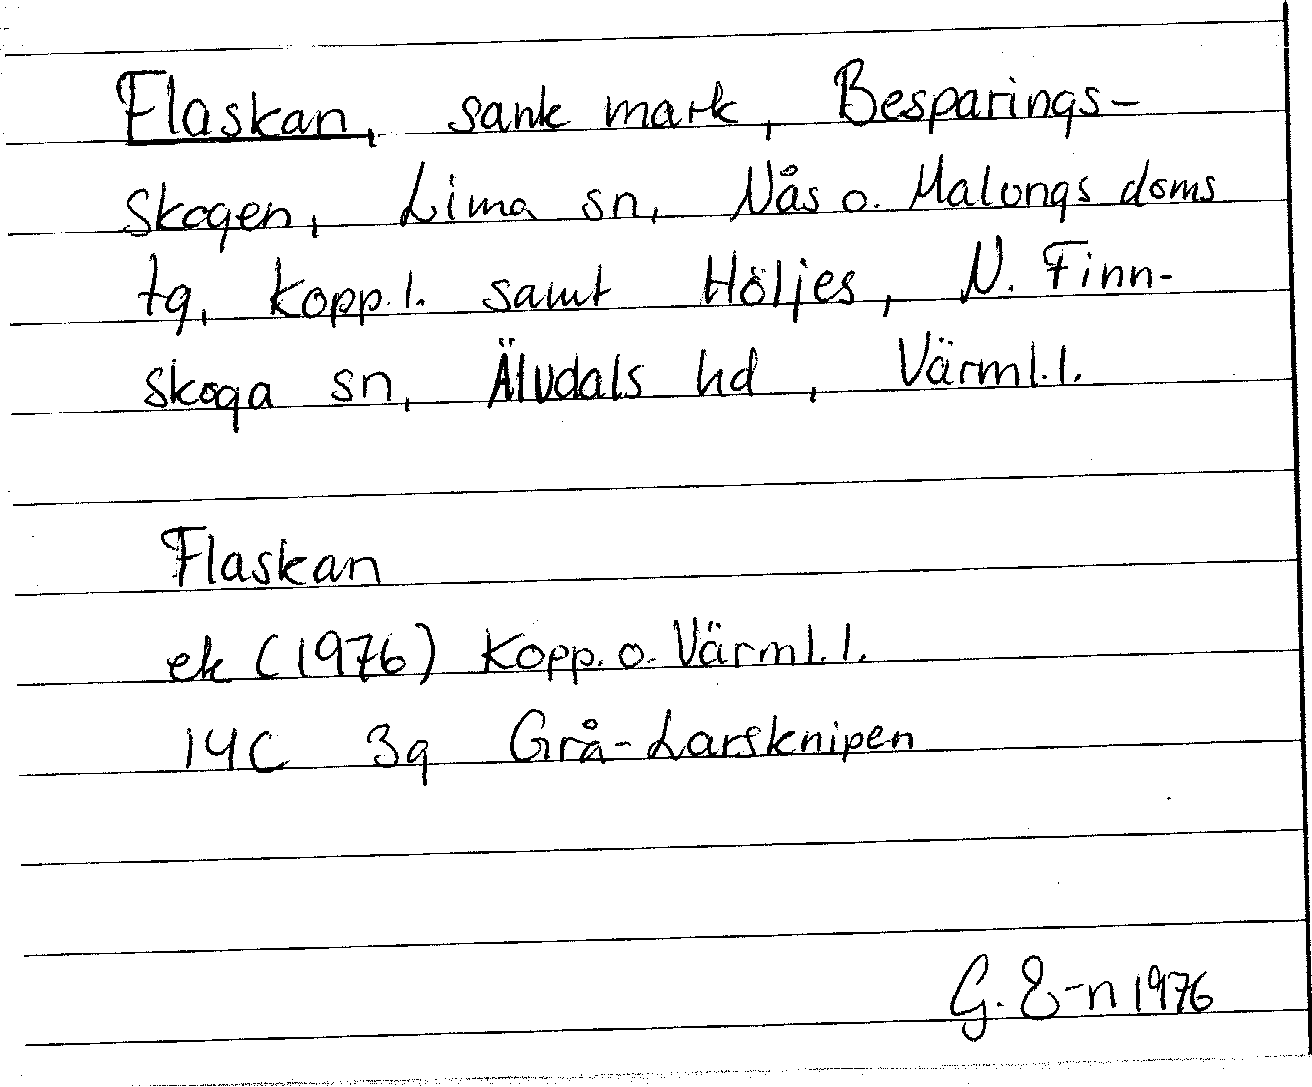 Flaskan, sank mark, Besparings-
skogen, Lima sn, Nås o. Malungs doms
tg, Kopp. l. samt Höljes, N. Finn-
skoga sn, Älvdals hd, Värml. l.
Flaskan
ek (1976) Kopp. o. Värml. l.
14C 3g Grå-Larsknipen
G. E-n 1976